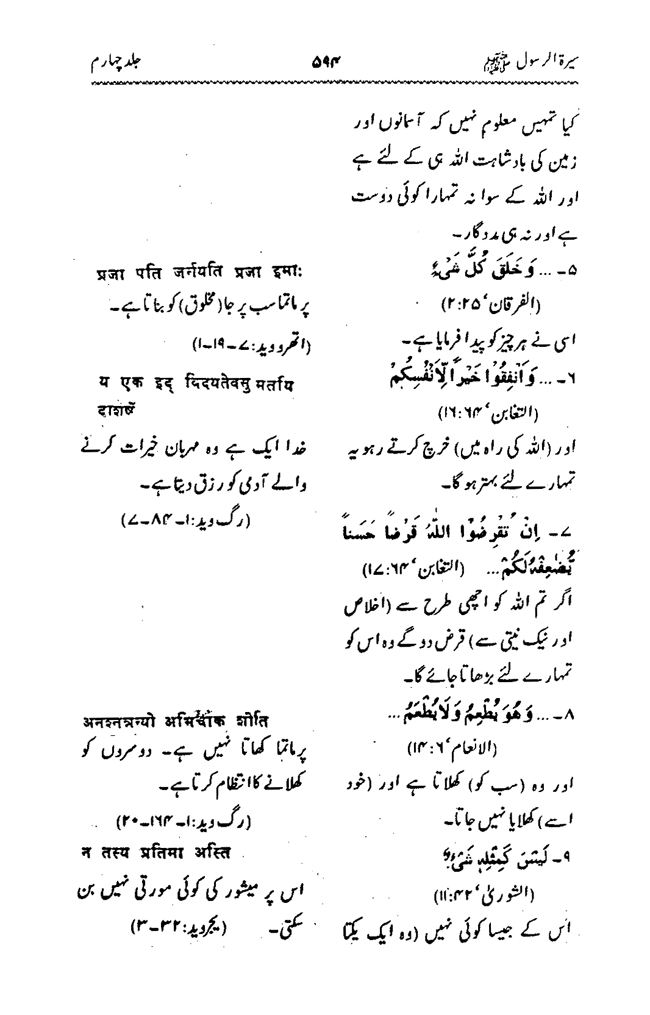 سیرۃ الرسول ﷺ ۵۹۴ جلد چہارم
کیا تمہیں معلوم نہیں کہ آسمانوں اور
زمین کی بادشاہت اللہ ہی کے لئے ہے
اور اللہ کے سوا نہ تمہارا کوئی دوست
ہے اور نہ ہی مددگار۔
۵۔ ... وَخَلَقَ كُلَّ شَیْءٍ
(الفرقان، ۲:۲۵)
اسی نے ہر چیز کو پیدا فرمایا ہے۔
۶۔ ... وَاَنْفِقُوْا خَیْراً لِّاَنْفُسِكُمْ
(التغابن، ۱۶:۶۴)
اور (اللہ کی راہ میں) خرچ کرتے رہو یہ
تمہارے لئے بہتر ہو گا۔
۷۔ اِنْ تُقْرِضُوْا اللّٰهَ قَرْضاً حَسَناً
یُّضٰعِفْهُ لَكُمْ... (التغابن، ۱۷:۶۴)
اگر تم اللہ کو اچھی طرح سے (اخلاص
اور نیک نیتی سے) قرض دو گے وہ اس کو
تمہارے لئے بڑھاتا جائے گا۔
۸۔ ... وَهُوَ یُطْعِمُ وَلَا یُطْعَمُ ...
(الانعام، ۱۴:۶)
اور وہ (سب کو) کھلاتا ہے اور (خود
اسے) کھلایا نہیں جاتا۔
۹۔ لَیْسَ كَمِثْلِهٖ شَیْءٌ
(الشوریٰ، ۱۱:۴۲)
اس کے جیسا کوئی نہیں (وہ ایک یکتا
प्रजा पति जर्नयति प्रजा इमाः
پرماتما سب پرجا (مخلوق) کو بناتا ہے۔
(اتھرو وید: ۷۔۱۹۔۱)
य एक इद् विदयतेवसु मर्ताय
दाशषे
خدا ایک ہے وہ مہربان خیرات کرنے
والے آدمی کو رزق دیتا ہے۔
(رگ وید: ۱۔۸۴۔۷)
अनश्नन्नन्यो अभिचाक शीति
پرماتما کھاتا نہیں ہے۔ دوسروں کو
کھلانے کا انتظام کرتا ہے۔
(رگ وید: ۱۔۱۶۴۔۲۰)
न तस्य प्रतिमा अस्ति
اس پر میشور کی کوئی مورتی نہیں بن
سکتی۔ (یجروید: ۳۲۔۳)